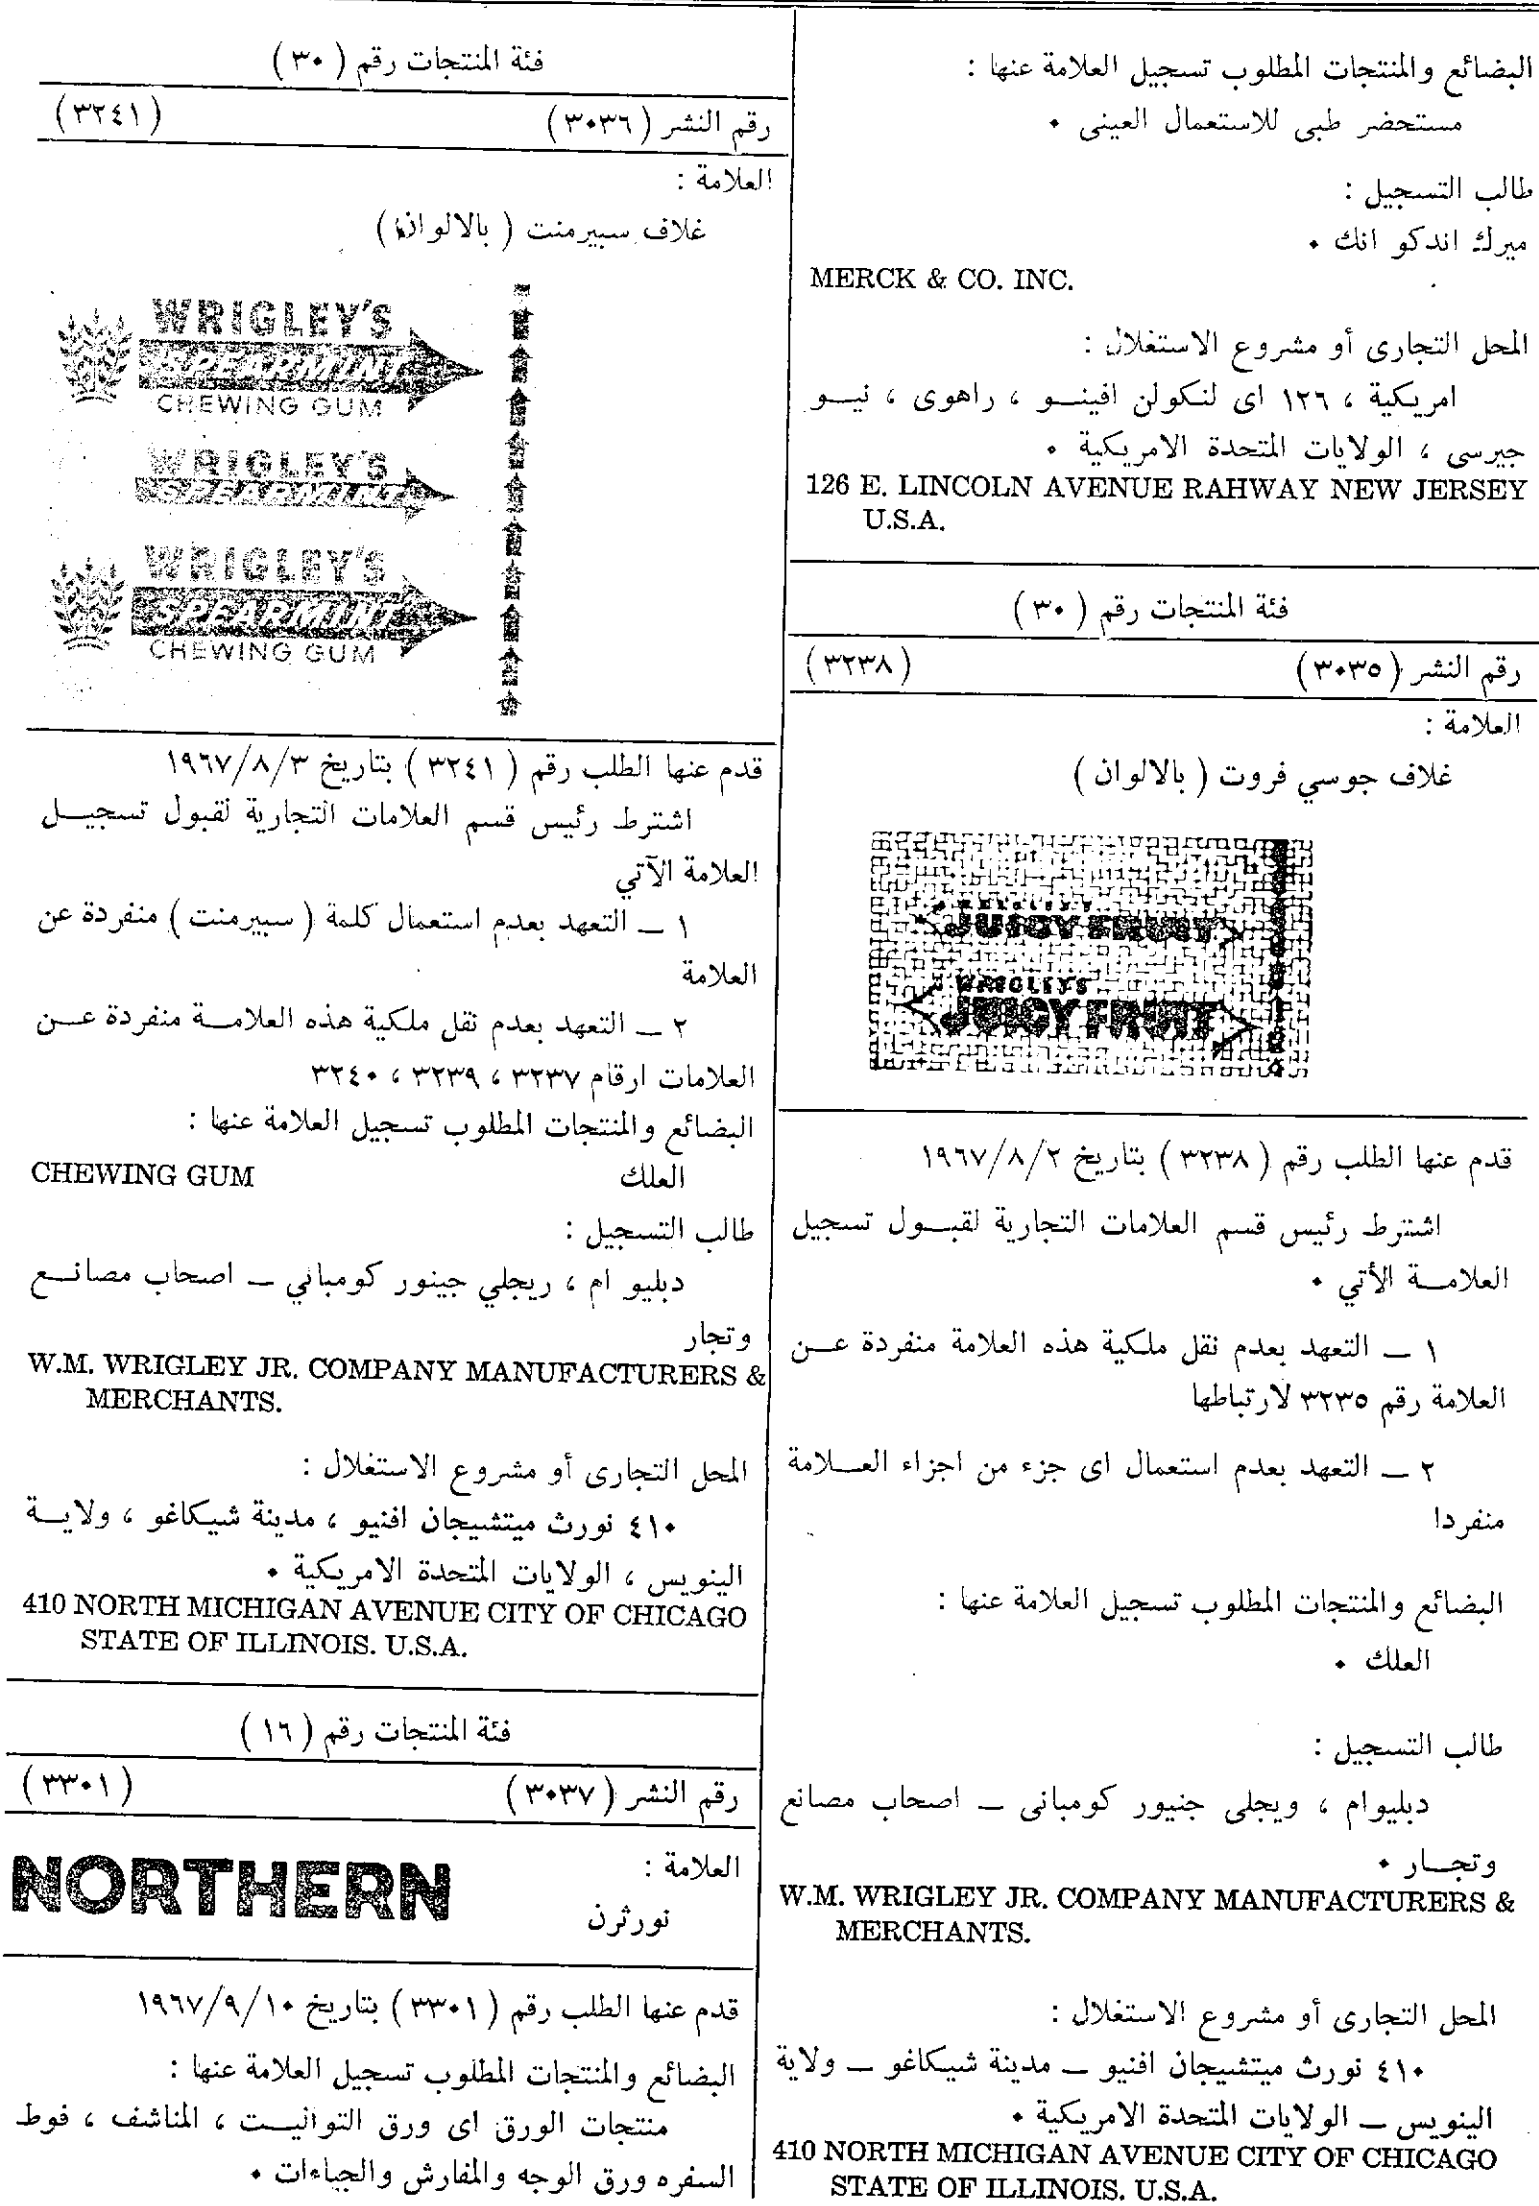 البضائع والمنتجات المطلوب تسجيل العلامة عنها :
مستحضر طبى للاستعمال العينى •
طالب التسجيل :
ميرك اندكو انك •
MERCK & CO. INC.
المحل التجارى أو مشروع الاستغلال :
امريكية ، ١٢٦ اى لنكولن افينــو ، راهوى ، نيــو
جيرسى ، الولايات المتحدة الامريكية •
126 E. LINCOLN AVENUE RAHWAY NEW JERSEY
U.S.A.
فئة المنتجات رقم ( ٣٠ )
رقم النشر ( ٣٠٣٥ ) ( ٣٢٣٨ )
العلامة :
غلاف جوسي فروت ( بالالوان )
WRIGLEY'S
JUICY FRUIT
WRIGLEY'S
JUICY FRUIT
قدم عنها الطلب رقم ( ٣٢٣٨ ) بتاريخ ١٩٦٧/٨/٢
اشترط رئيس قسم العلامات التجارية لقبــول تسجيل
العلامــة الأتي •
١ ــ التعهد بعدم نقل ملكية هذه العلامة منفردة عــن
العلامة رقم ٣٢٣٥ لارتباطها
٢ ــ التعهد بعدم استعمال اى جزء من اجزاء العــلامة
منفردا
البضائع والمنتجات المطلوب تسجيل العلامة عنها :
العلك •
طالب التسجيل :
دبليوام ، ويجلى جنيور كومبانى ــ اصحاب مصانع
وتجــار •
W.M. WRIGLEY JR. COMPANY MANUFACTURERS &
MERCHANTS.
المحل التجارى أو مشروع الاستغلال :
٤١٠ نورث ميتشيجان افنيو ــ مدينة شيكاغو ــ ولاية
الينويس ــ الولايات المتحدة الامريكية •
410 NORTH MICHIGAN AVENUE CITY OF CHICAGO
STATE OF ILLINOIS. U.S.A.
فئة المنتجات رقم ( ٣٠ )
رقم النشر ( ٣٠٣٦ ) ( ٣٢٤١ )
العلامة :
غلاف سبيرمنت ( بالالوان )
WRIGLEY'S
SPEARMINT
CHEWING GUM
WRIGLEY'S
SPEARMINT
WRIGLEY'S
SPEARMINT
CHEWING GUM
قدم عنها الطلب رقم ( ٣٢٤١ ) بتاريخ ١٩٦٧/٨/٣
اشترط رئيس قسم العلامات التجارية لقبول تسجيــل
العلامة الآتي
١ ــ التعهد بعدم استعمال كلمة ( سبيرمنت ) منفردة عن
العلامة
٢ ــ التعهد بعدم نقل ملكية هذه العلامــة منفردة عــن
العلامات ارقام ٣٢٣٧ ، ٣٢٣٩ ، ٣٢٤٠
البضائع والمنتجات المطلوب تسجيل العلامة عنها :
العلك CHEWING GUM
طالب التسجيل :
دبليو ام ، ريجلي جينور كومباني ــ اصحاب مصانــع
وتجار
W.M. WRIGLEY JR. COMPANY MANUFACTURERS &
MERCHANTS.
المحل التجارى أو مشروع الاستغلال :
٤١٠ نورث ميتشيجان افنيو ، مدينة شيكاغو ، ولايــة
الينويس ، الولايات المتحدة الامريكية •
410 NORTH MICHIGAN AVENUE CITY OF CHICAGO
STATE OF ILLINOIS. U.S.A.
فئة المنتجات رقم ( ١٦ )
رقم النشر ( ٣٠٣٧ ) ( ٣٣٠١ )
العلامة :
NORTHERN
نورثرن
قدم عنها الطلب رقم ( ٣٣٠١ ) بتاريخ ١٩٦٧/٩/١٠
البضائع والمنتجات المطلوب تسجيل العلامة عنها :
منتجات الورق اى ورق التواليــت ، المناشف ، فوط
السفره ورق الوجه والمفارش والجباءات •